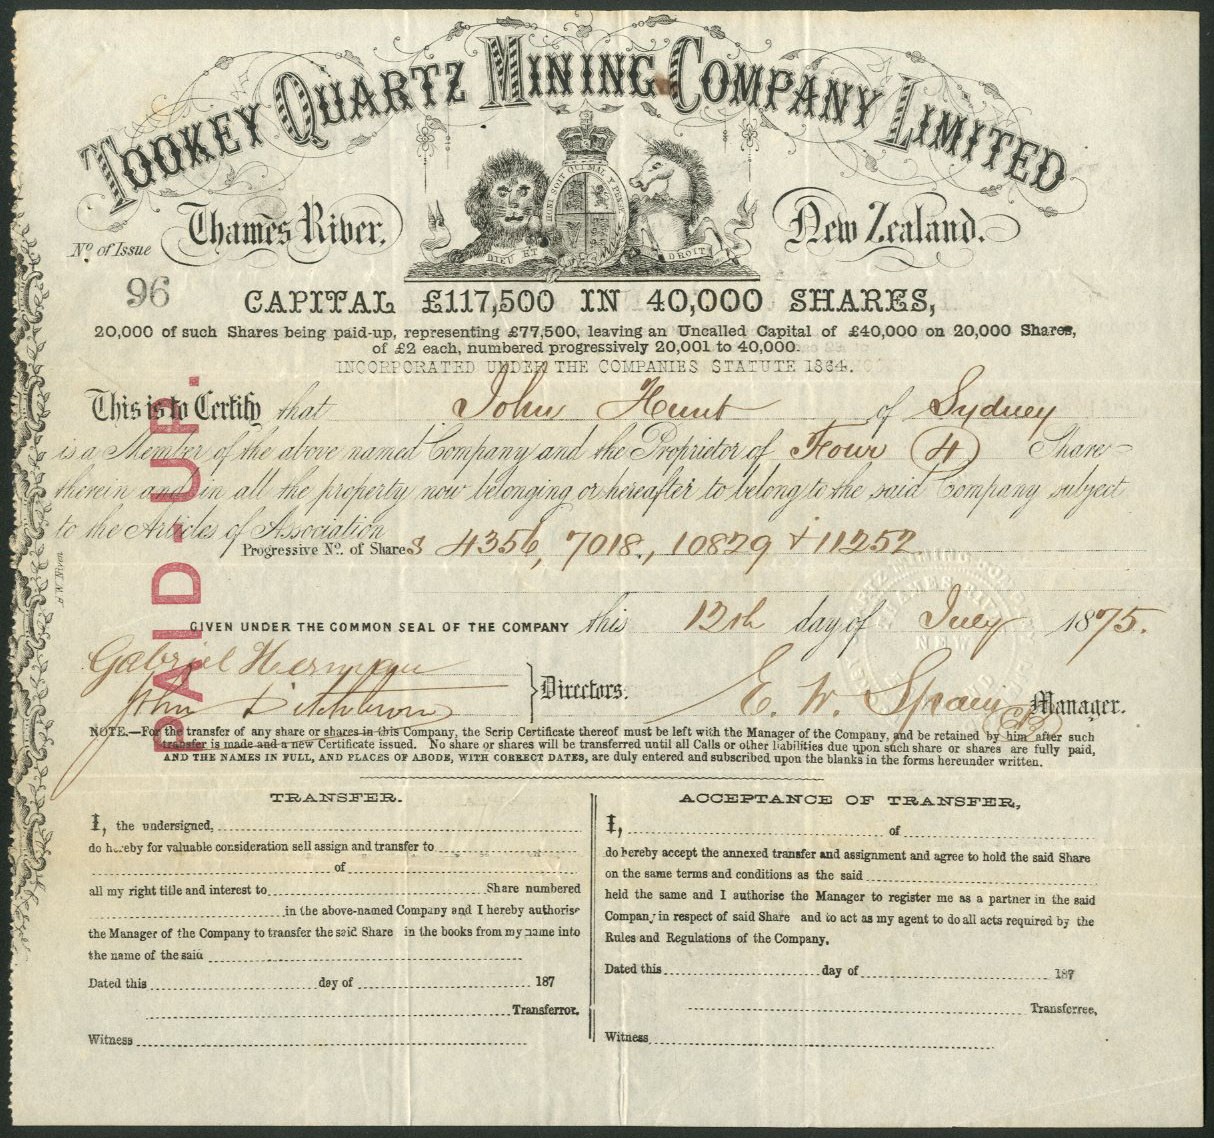 TOOKEY QUARTZ MINING COMPANY LIMITED
Thames River, New Zealand.
HONI SOIT QUI MAL Y PENSE
DIEU ET DROIT
No. of Issue
96
CAPITAL £117,500 IN 40,000 SHARES,
20,000 of such Shares being paid-up, representing £77,500, leaving an Uncalled Capital of £40,000 on 20,000 Shares,
of £2 each, numbered progressively 20,001 to 40,000.
INCORPORATED UNDER THE COMPANIES STATUTE 1864.
This is to Certify that John Hunt of Sydney
is a Member of the above named Company and the Proprietor of Four (4) Share
therein and in all the property now belonging or hereafter to belong to the said Company subject
to the Articles of Association
Progressive No. of Shares 4356, 7018, 10829 & 11252
PAID-UP.
GIVEN UNDER THE COMMON SEAL OF THE COMPANY this 12th day of July 1875.
Gabriel Herman
John
Directors.
E. W. Manager.
NOTE.—For the transfer of any share or shares in this Company, the Scrip Certificate thereof must be left with the Manager of the Company, and be retained by him after such
transfer is made and a new Certificate issued. No share or shares will be transferred until all Calls or other liabilities due upon such share or shares are fully paid,
AND THE NAMES IN FULL, AND PLACES OF ABODE, WITH CORRECT DATES, are duly entered and subscribed upon the blanks in the forms hereunder written.
TRANSFER.
I, the undersigned,
do hereby for valuable consideration sell assign and transfer to
of
all my right title and interest to Share numbered
in the above-named Company and I hereby authorise
the Manager of the Company to transfer the said Share in the books from my name into
the name of the said
Dated this day of 187
Transferror.
Witness
ACCEPTANCE OF TRANSFER,
I, of
do hereby accept the annexed transfer and assignment and agree to hold the said Share
on the same terms and conditions as the said
held the same and I authorise the Manager to register me as a partner in the said
Company in respect of said Share and to act as my agent to do all acts required by the
Rules and Regulations of the Company.
Dated this day of 187
Transferree,
Witness